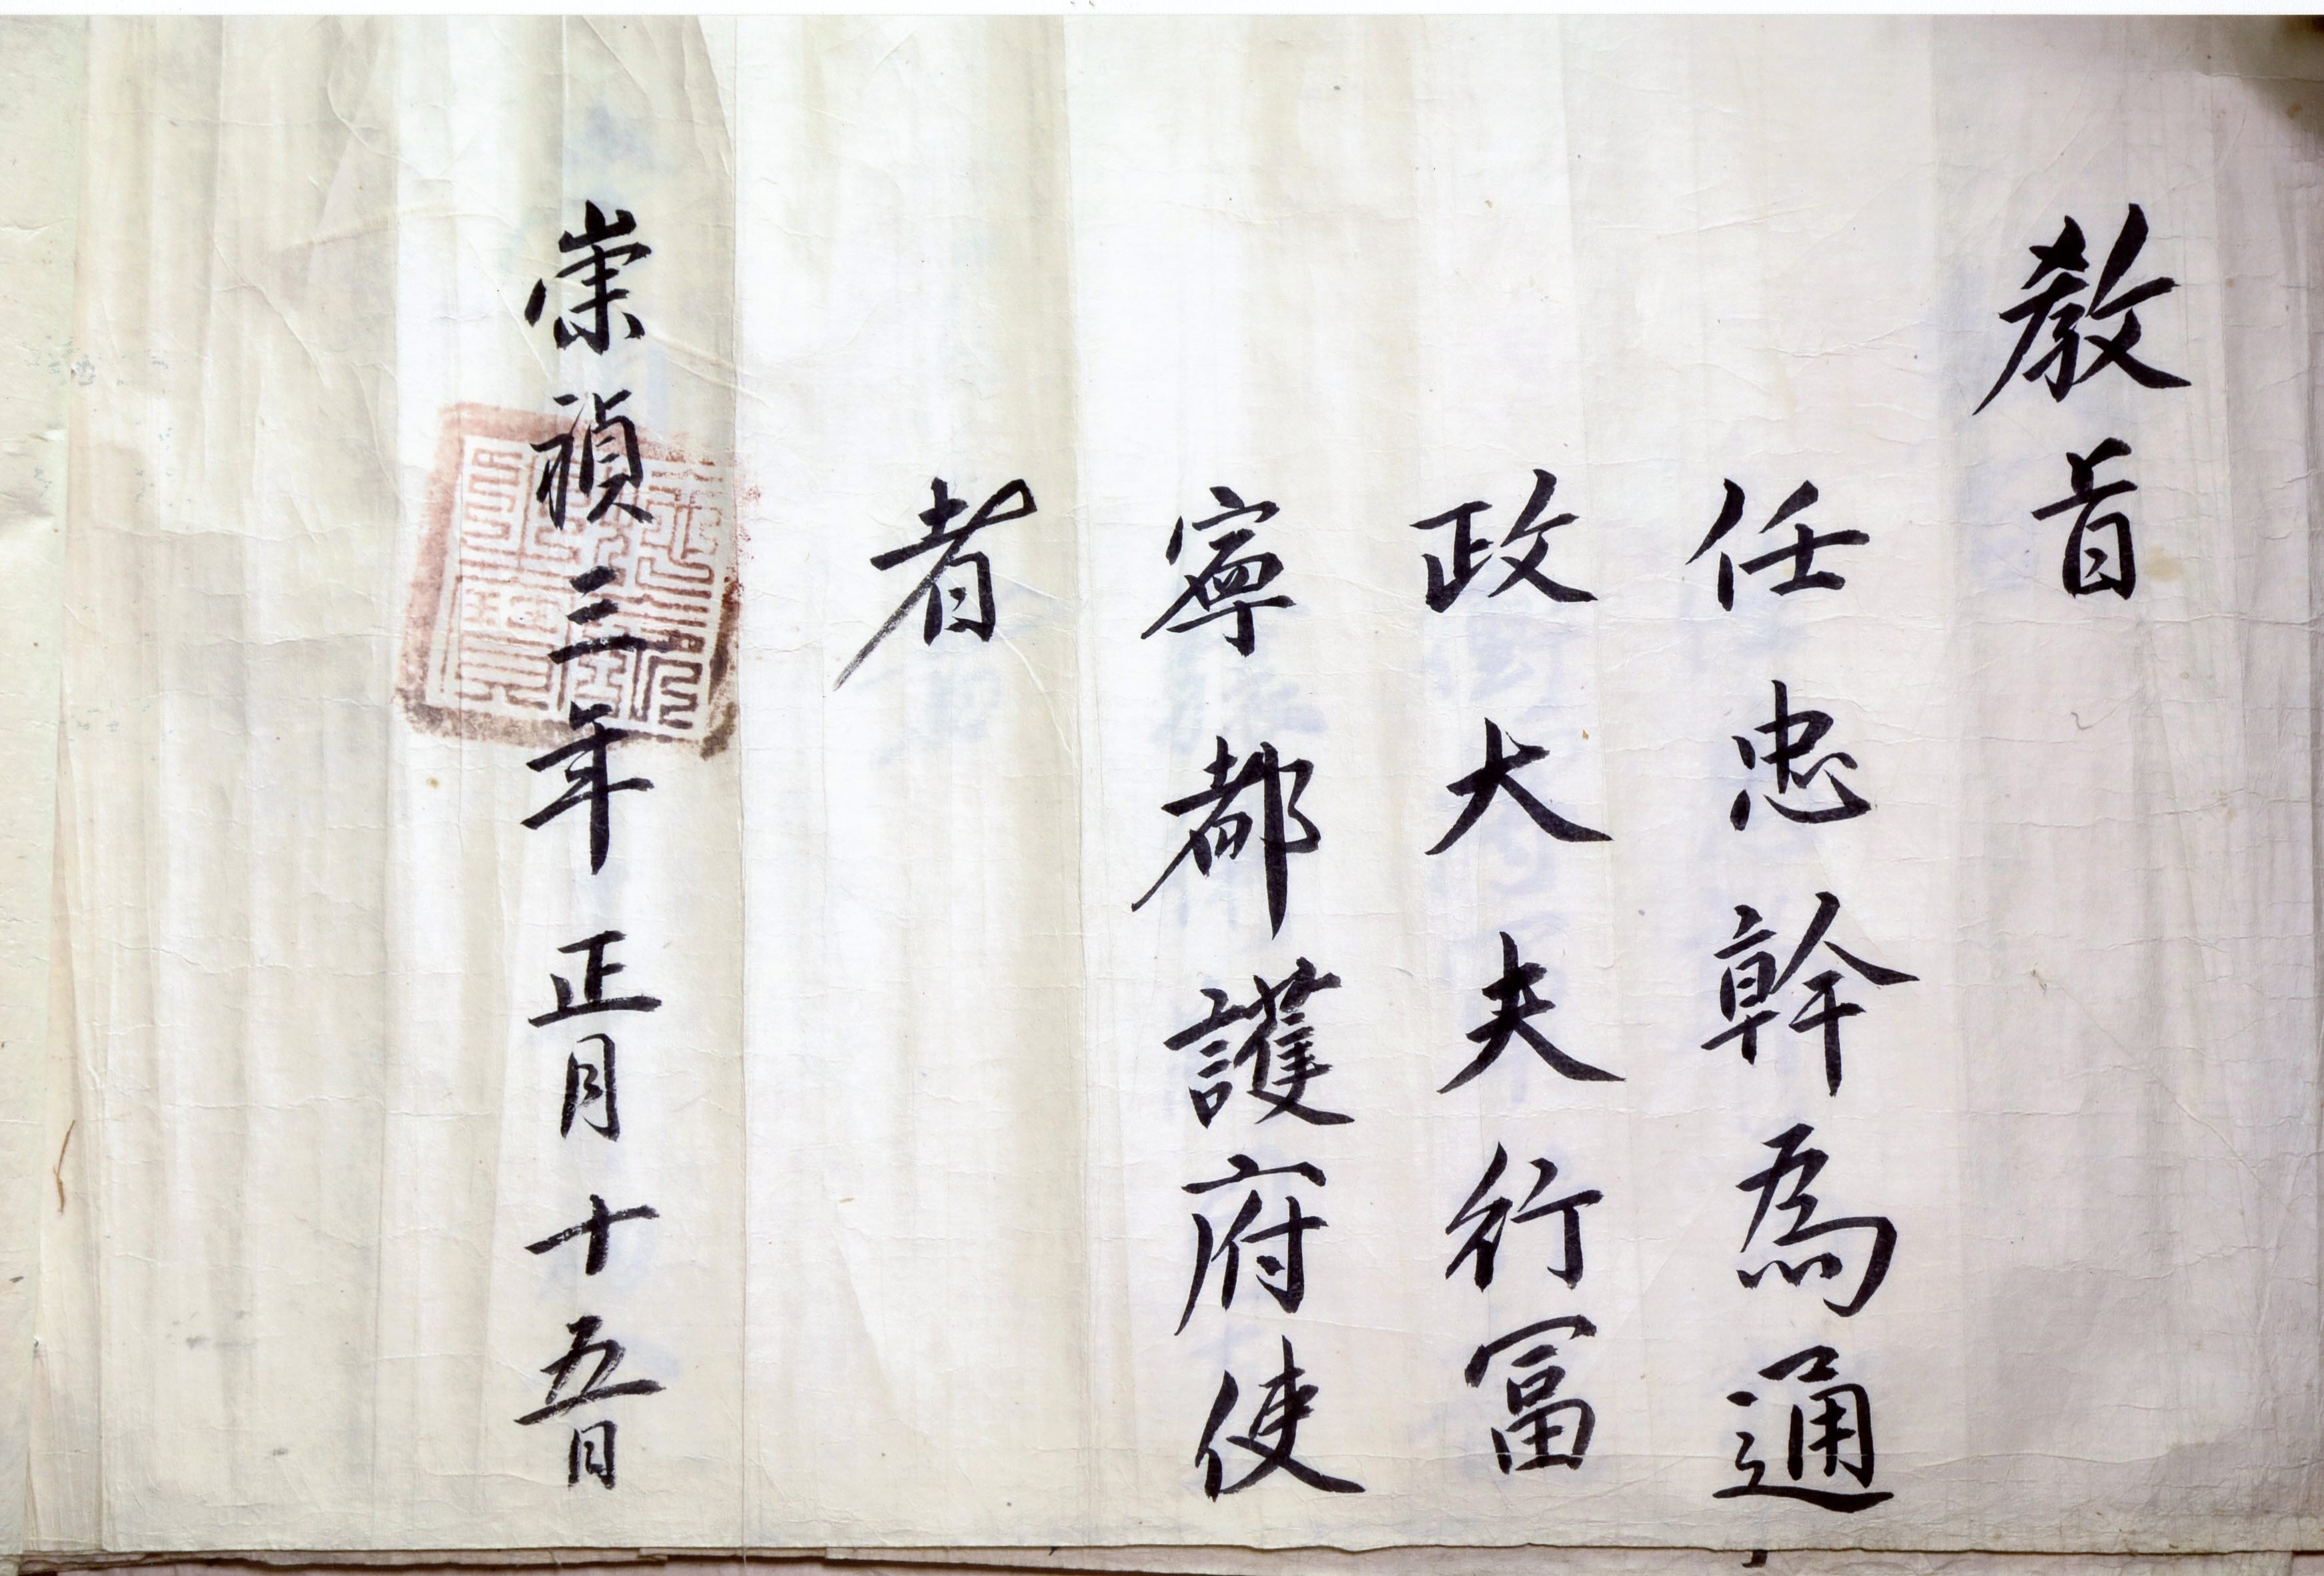 教旨
任忠幹為通
政大夫行富
寧都護府使
者
崇禎三年正月十五日